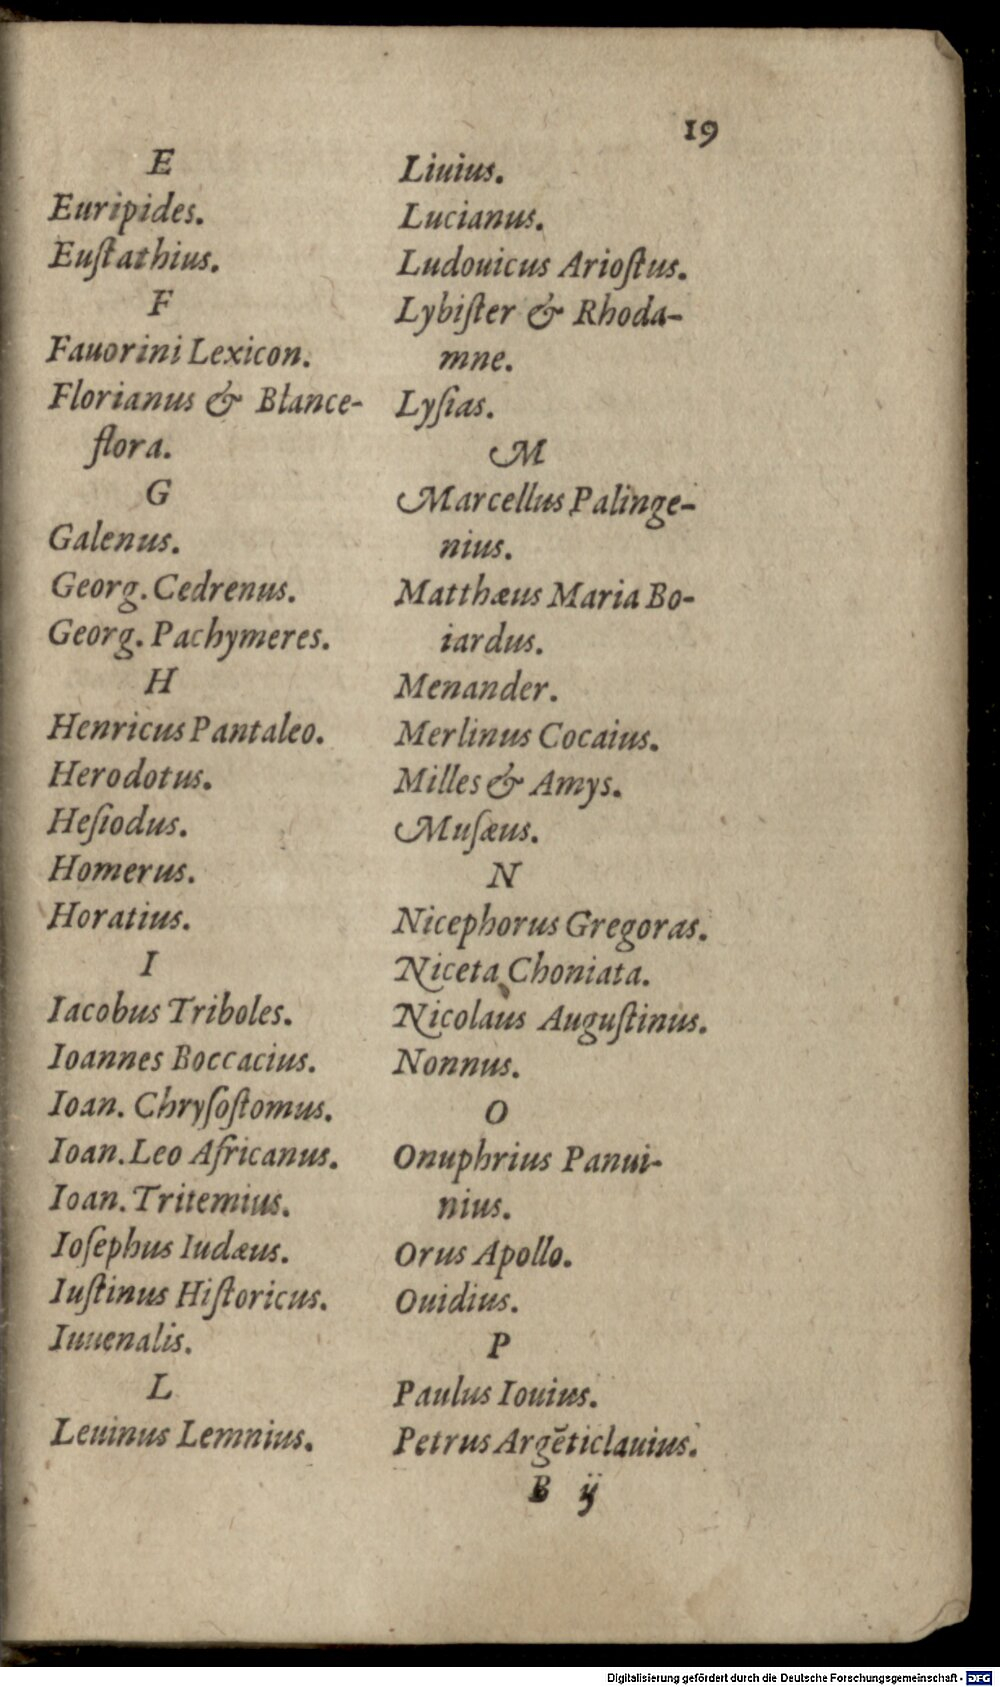 19
E
Euripides.
Euſtathius.
F
Fauorini Lexicon.
Florianus & Blance-
flora.
G
Galenus.
Georg. Cedrenus.
Georg. Pachymeres.
H
Henricus Pantaleo.
Herodotus.
Heſiodus.
Homerus.
Horatius.
I
Iacobus Triboles.
Ioannes Boccacius.
Ioan. Chryſoſtomus.
Ioan. Leo Africanus.
Ioan. Tritemius.
Ioſephus Iudæus.
Iuſtinus Hiſtoricus.
Iuuenalis.
L
Leuinus Lemnius.
Liuius.
Lucianus.
Ludouicus Arioſtus.
Lybiſter & Rhoda-
mne.
Lyſias.
M
Marcellus Palinge-
nius.
Matthæus Maria Bo-
iardus.
Menander.
Merlinus Cocaius.
Milles & Amys.
Muſæus.
N
Nicephorus Gregoras.
Niceta Choniata.
Nicolaus Auguſtinus.
Nonnus.
O
Onuphrius Panui-
nius.
Orus Apollo.
Ouidius.
P
Paulus Iouius.
Petrus Argẽticlauius.
B ij
Digitalisierung gefördert durch die Deutsche Forschungsgemeinschaft - DFG